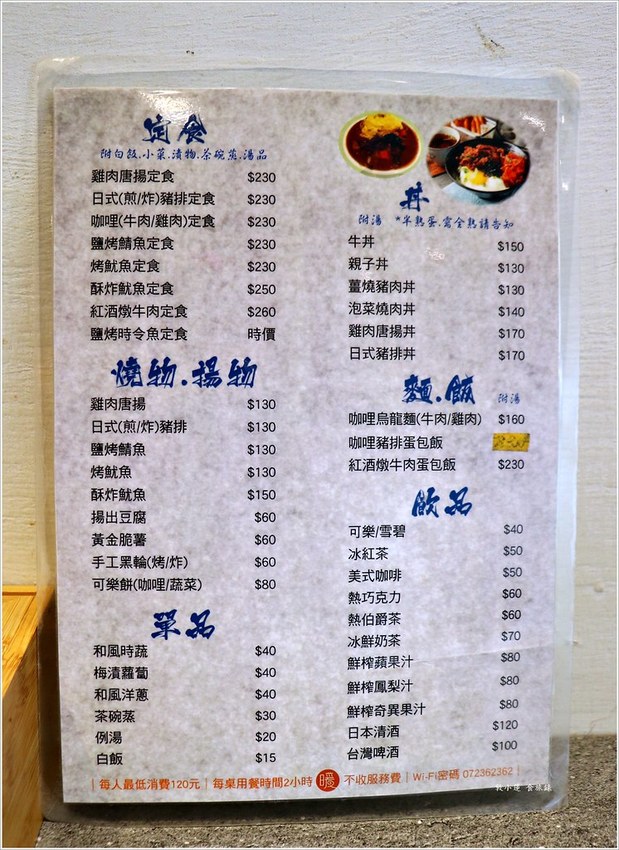 定食
附白飯.小菜.漬物.茶碗蒸.湯品
雞肉唐揚定食 $230
日式(煎/炸)豬排定食 $230
咖哩(牛肉/雞肉)定食 $230
鹽烤鯖魚定食 $230
烤魷魚定食 $230
酥炸魷魚定食 $250
紅酒燉牛肉定食 $260
鹽烤時令魚定食 時價
燒物.揚物
雞肉唐揚 $130
日式(煎/炸)豬排 $130
鹽烤鯖魚 $130
烤魷魚 $130
酥炸魷魚 $150
揚出豆腐 $60
黃金脆薯 $60
手工黑輪(烤/炸) $60
可樂餅(咖哩/蔬菜) $80
單品
和風時蔬 $40
梅漬蘿蔔 $40
和風洋蔥 $40
茶碗蒸 $30
例湯 $20
白飯 $15
丼
附湯 *半熟蛋.需全熟請告知
牛丼 $150
親子丼 $130
薑燒豬肉丼 $130
泡菜燒肉丼 $140
雞肉唐揚丼 $170
日式豬排丼 $170
麵.飯 附湯
咖哩烏龍麵(牛肉/雞肉) $160
咖哩豬排蛋包飯
紅酒燉牛肉蛋包飯 $230
飲品
可樂/雪碧 $40
冰紅茶 $50
美式咖啡 $50
熱巧克力 $60
熱伯爵茶 $60
冰鮮奶茶 $70
鮮榨蘋果汁 $80
鮮榨鳳梨汁 $80
鮮榨奇異果汁 $80
日本清酒 $120
台灣啤酒 $100
| 每人最低消費120元 | 每桌用餐時間2小時 暖 不收服務費 | Wi-Fi密碼 072362362 |